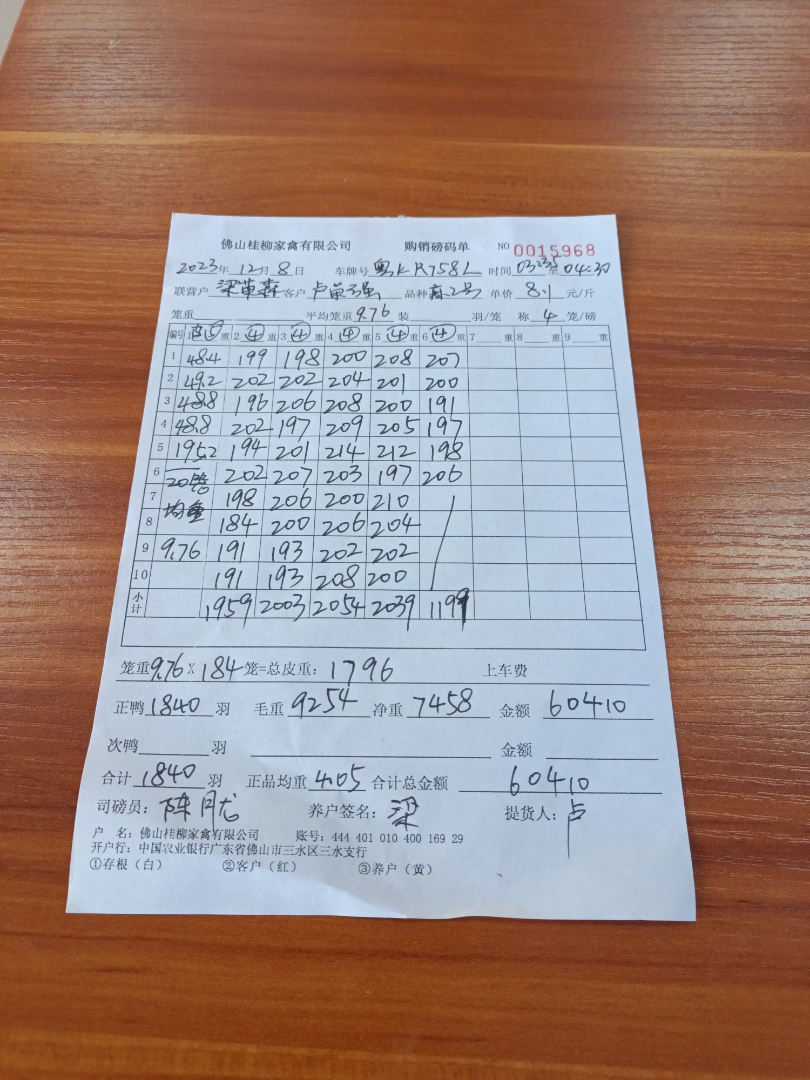 佛山桂柳家禽有限公司 购销磅码单 NO 0015968
2023年12月8日 车牌号 粤K R758L 时间 03:35至04:30
联营户 梁 客户 卢 品种 2号 单价 8.1 元/斤
笼重 平均笼重 9.76 装 羽/笼 称 4 笼/磅
编号 1 皮⑤ 重 2 ④ 重 3 ④ 重 4 ④ 重 5 ④ 重 6 ④ 重 7 重 8 重 9 重
1 48.4 199 198 200 208 207
2 49.2 202 202 204 201 200
3 48.8 196 206 208 200 191
4 48.8 202 197 209 205 197
5 195.2 194 201 214 212 198
6 20笼 202 207 203 197 206
7 均重 198 206 200 210
8 184 200 206 204
9 9.76 191 193 202 202
10 191 193 208 200
小计 1959 2003 2054 2039 1199
笼重 9.76 X 184 笼=总皮重: 1796 上车费
正鸭 1840 羽 毛重 9254 净重 7458 金额 60410
次鸭 羽 金额
合计 1840 羽 正品均重 4.05 合计总金额 60410
司磅员: 陈月龙 养户签名: 梁 提货人: 卢
户 名: 佛山桂柳家禽有限公司 账号: 444 401 010 400 169 29
开户行: 中国农业银行广东省佛山市三水区三水支行
①存根(白) ②客户(红) ③养户(黄)